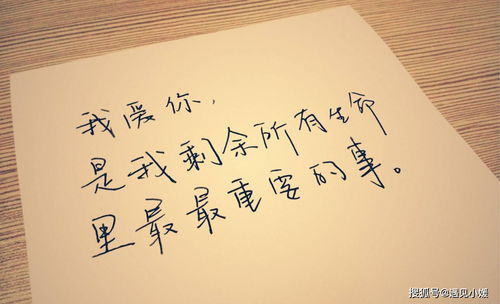 我爱你，
是我剩余所有生命
里最最重要的事。
搜狐号@遇见小媛